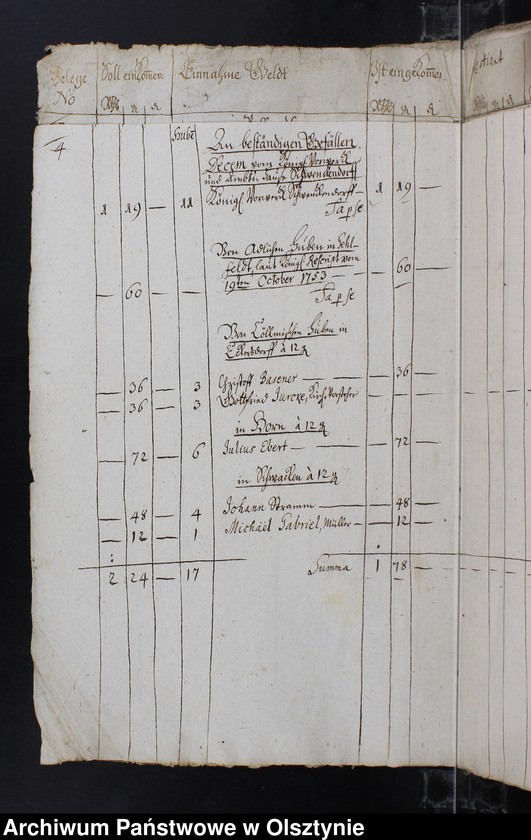 Belege No | Soll einkomen | Einnahme Geldt | Ist eingekomen | restiret
Rthl | g | d | Rthl | g | d
4 | Hube | An beständigen Gefällen.
Decem vom Königl. Vorwerck
und Ambts Hause Schwenckendorff
1 | 19 | — | 11 | Königl. Vorwerck Schwenckendorff — | 1 | 19 | —
Ta p se
Von Adlichen Huben in
feldt, laut Königl. Rescript vom
— | 60 | — | — | 19ten October 1753 — | — | 60 | —
Ta p se
Von Cöllmischen Huben in
Eckersdorff à 12 g
— | 36 | — | 3 | Christoff Basener — | — | 36 | —
— | 36 | — | 3 | Gottfried Kirch Vorsteher | — | — | —
in Horn à 12 g
— | 72 | — | 6 | Julius Ebert — | — | 72 | —
in Schwacken à 12 g
— | 48 | — | 4 | Johann Stramm — | — | 48 | —
— | 12 | — | 1 | Michael Gabriel, Müller — | — | 12 | —
2 | 24 | — | 17 | Summa | 1 | 78 | —
Archiwum Państwowe w Olsztynie